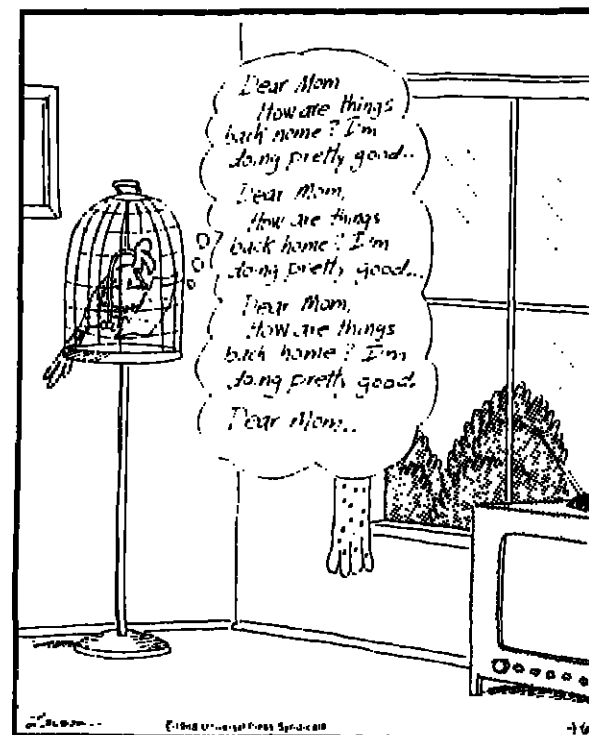 Dear Mom
How are things
back home? I'm
doing pretty good..
Dear Mom,
How are things
back home? I'm
doing pretty good...
Dear Mom,
How are things
back home? I'm
doing pretty good.
Dear Mom..
Universal Press Syndicate